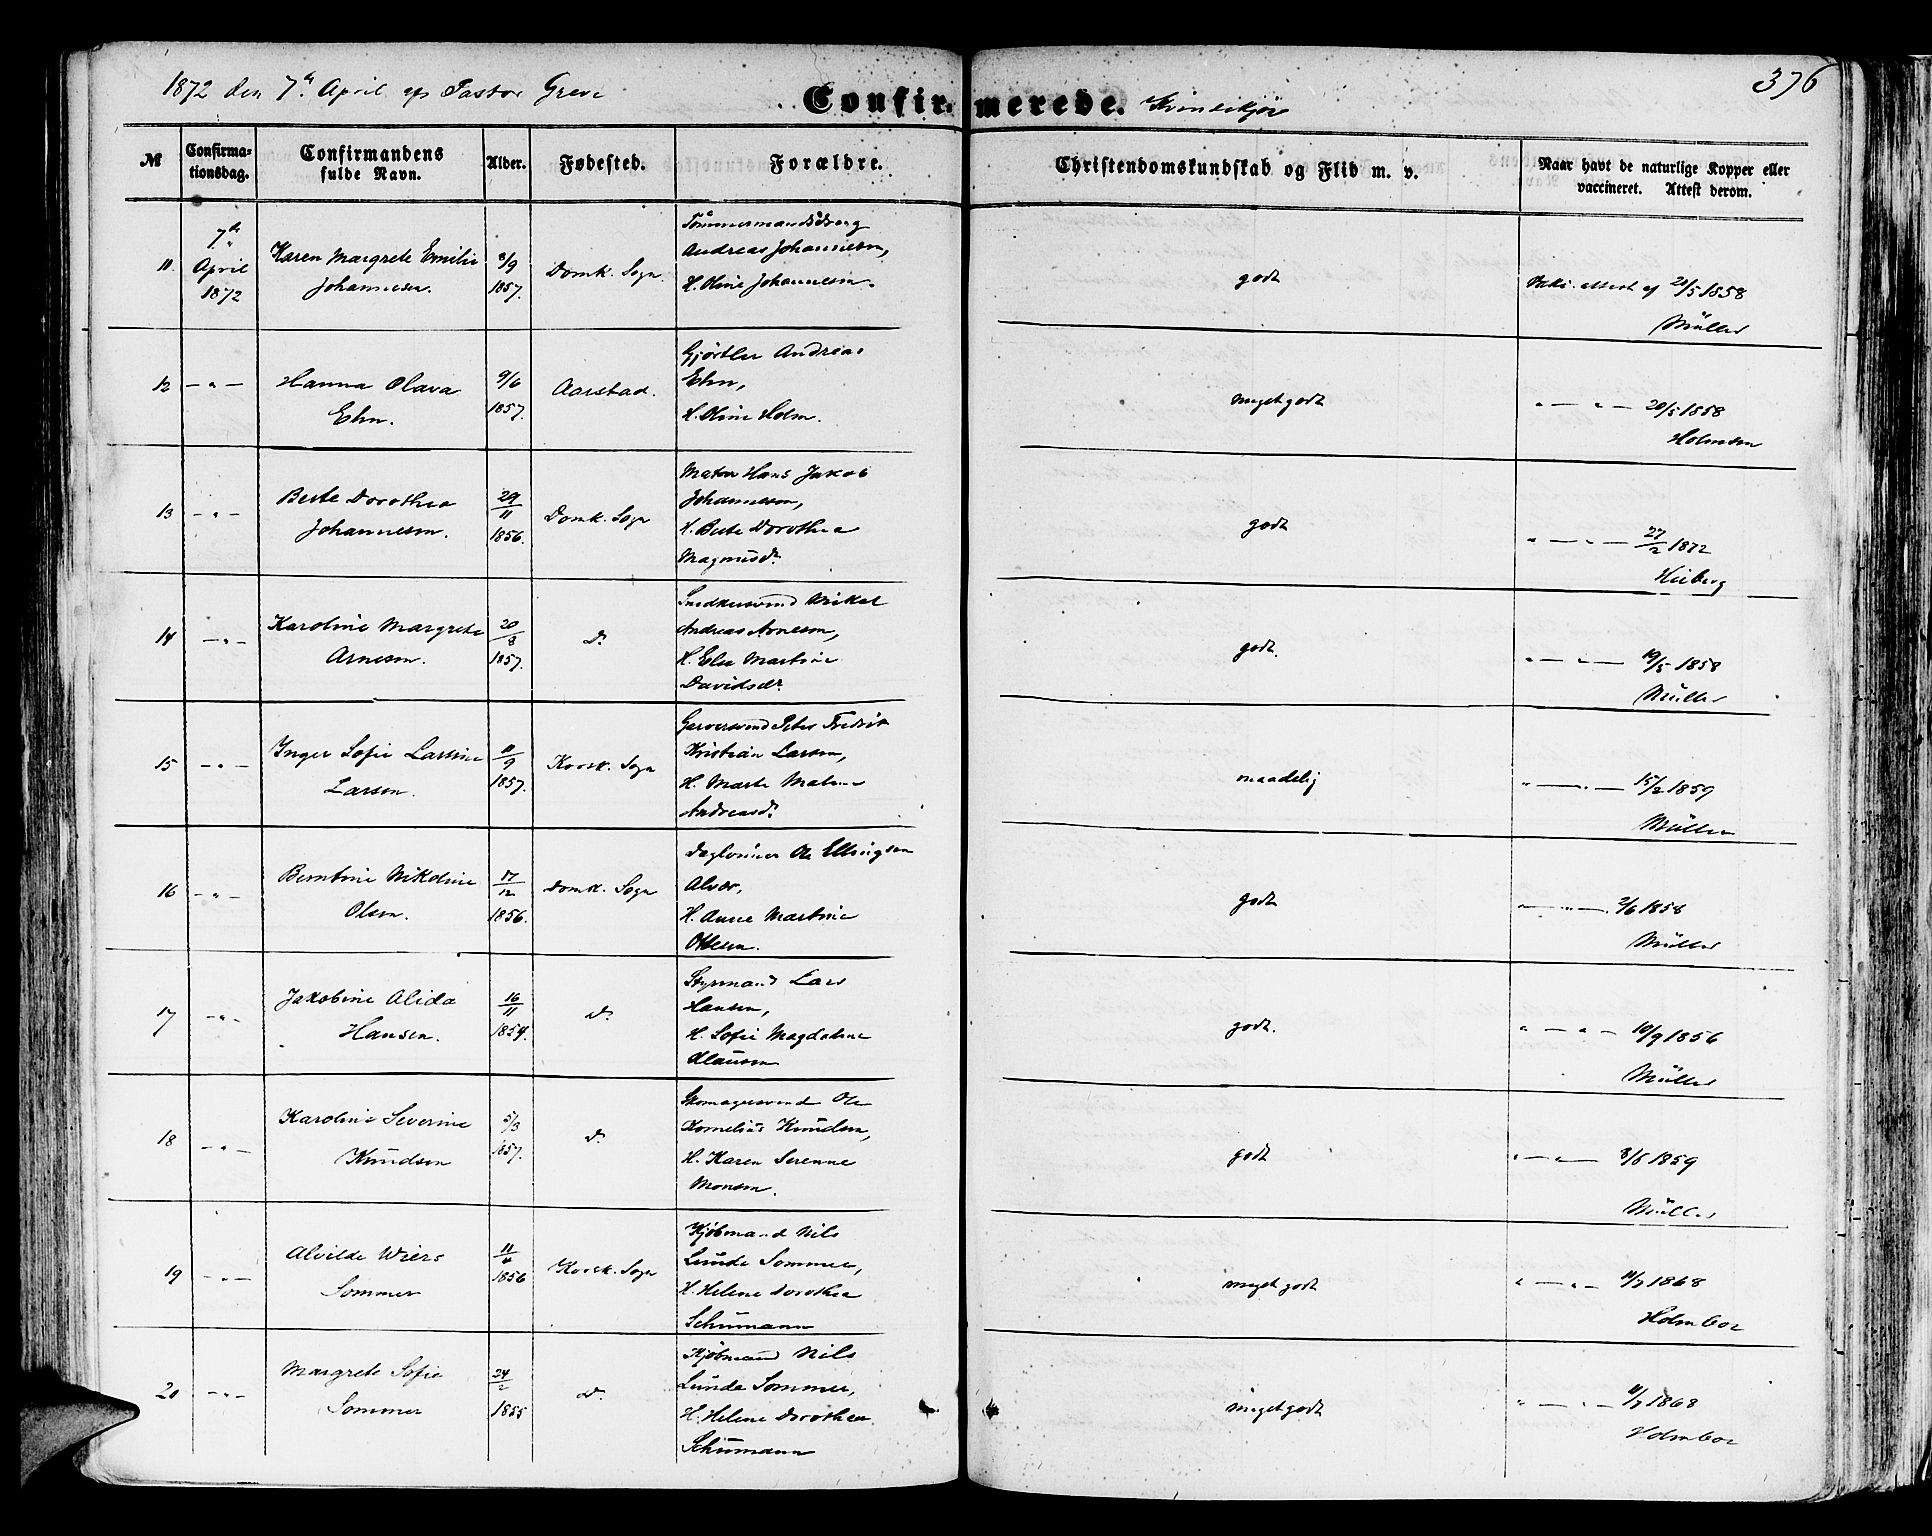 1872 den 7de April af Pastor Greve
Confirmerede. Kvindekjøn
376
No
Confirmationsdag.
Confirmandens fulde Navn.
Alder.
Fødested.
Forældre.
Christendomskundskab og Flid m. v.
Naar havt de naturlige Kopper eller vaccineret. Attest derom.
11.
7de April 1872
Karen Margrete Emilie
Johannesen.
8/9 1857.
Domk. Sogn.
Tømmermandsdreng
Andreas Johannesen,
H. Oline Johannesen.
godt
Vakc. attest af 20/5 1858
Müller
12
— " —
Hanna Olava
Ehn.
9/6 1857.
Aarstad.
Gjørtler Andreas
Ehn,
H. Oline Holm.
meget godt
" — " — 20/5 1858
Holmsen
13
— " —
Berte Dorothea
Johannesen.
29/11 1856.
Domk. Sogn
Matros Hans Jakob
Johannesen,
H. Berte Dorothea
Magnusdr.
godt
" — " — 27/2 1872
Heiberg
14
— " —
Karoline Margrete
Arnesen.
20/8 1857.
Do.
Snedkersvend Mikal
Andreas Arnesen,
H. Elen Martine
Davidsdr.
godt.
" — " — 19/5 1858
Müller
15
— " —
Inger Sofie Larsine
Larsen.
11/9 1857.
Korsk. Sogn
Garversvend Peter Fredrik
Kristian Larsen,
H. Marte Malene
Andreasdr.
maadelig
" — " — 15/2 1859
Müller
16
— " —
Berntine Nikoline
Olsen.
17/12 1856.
Domk. Sogn
Daglønner Ole Ellingsen
Alvær,
H. Anne Martine
Ottesen.
godt
" — " — 2/6 1858
Müller
17
— " —
Jakobine Alida
Hansen.
16/11 1854.
Do.
Styrmand Lars
Hansen,
H. Sofie Magdalene
Klausen
godt.
" — " — 10/9 1856
Müller
18
— " —
Karoline Severine
Knudsen
5/3 1857.
Do.
Skomagersvend Ole
Kornelius Knudsen,
H. Karen Serenne
Monsen.
godt
" — " — 8/6 1859
Müller
19
— " —
Alvilde Wiers
Sommer
11/4 1856
Korsk. Sogn
Kjøbmand Nils
Lunde Sommer,
H. Helene Dorothea
Schumann
meget godt
" — " — 11/7 1868
Holmboe
20
— " —
Margrete Sofie
Sommer
24/2 1855
Do.
Kjøbmand Nils
Lunde Sommer,
H. Helene Dorothea
Schumann
meget godt
" — " — 11/7 1868
Holmboe